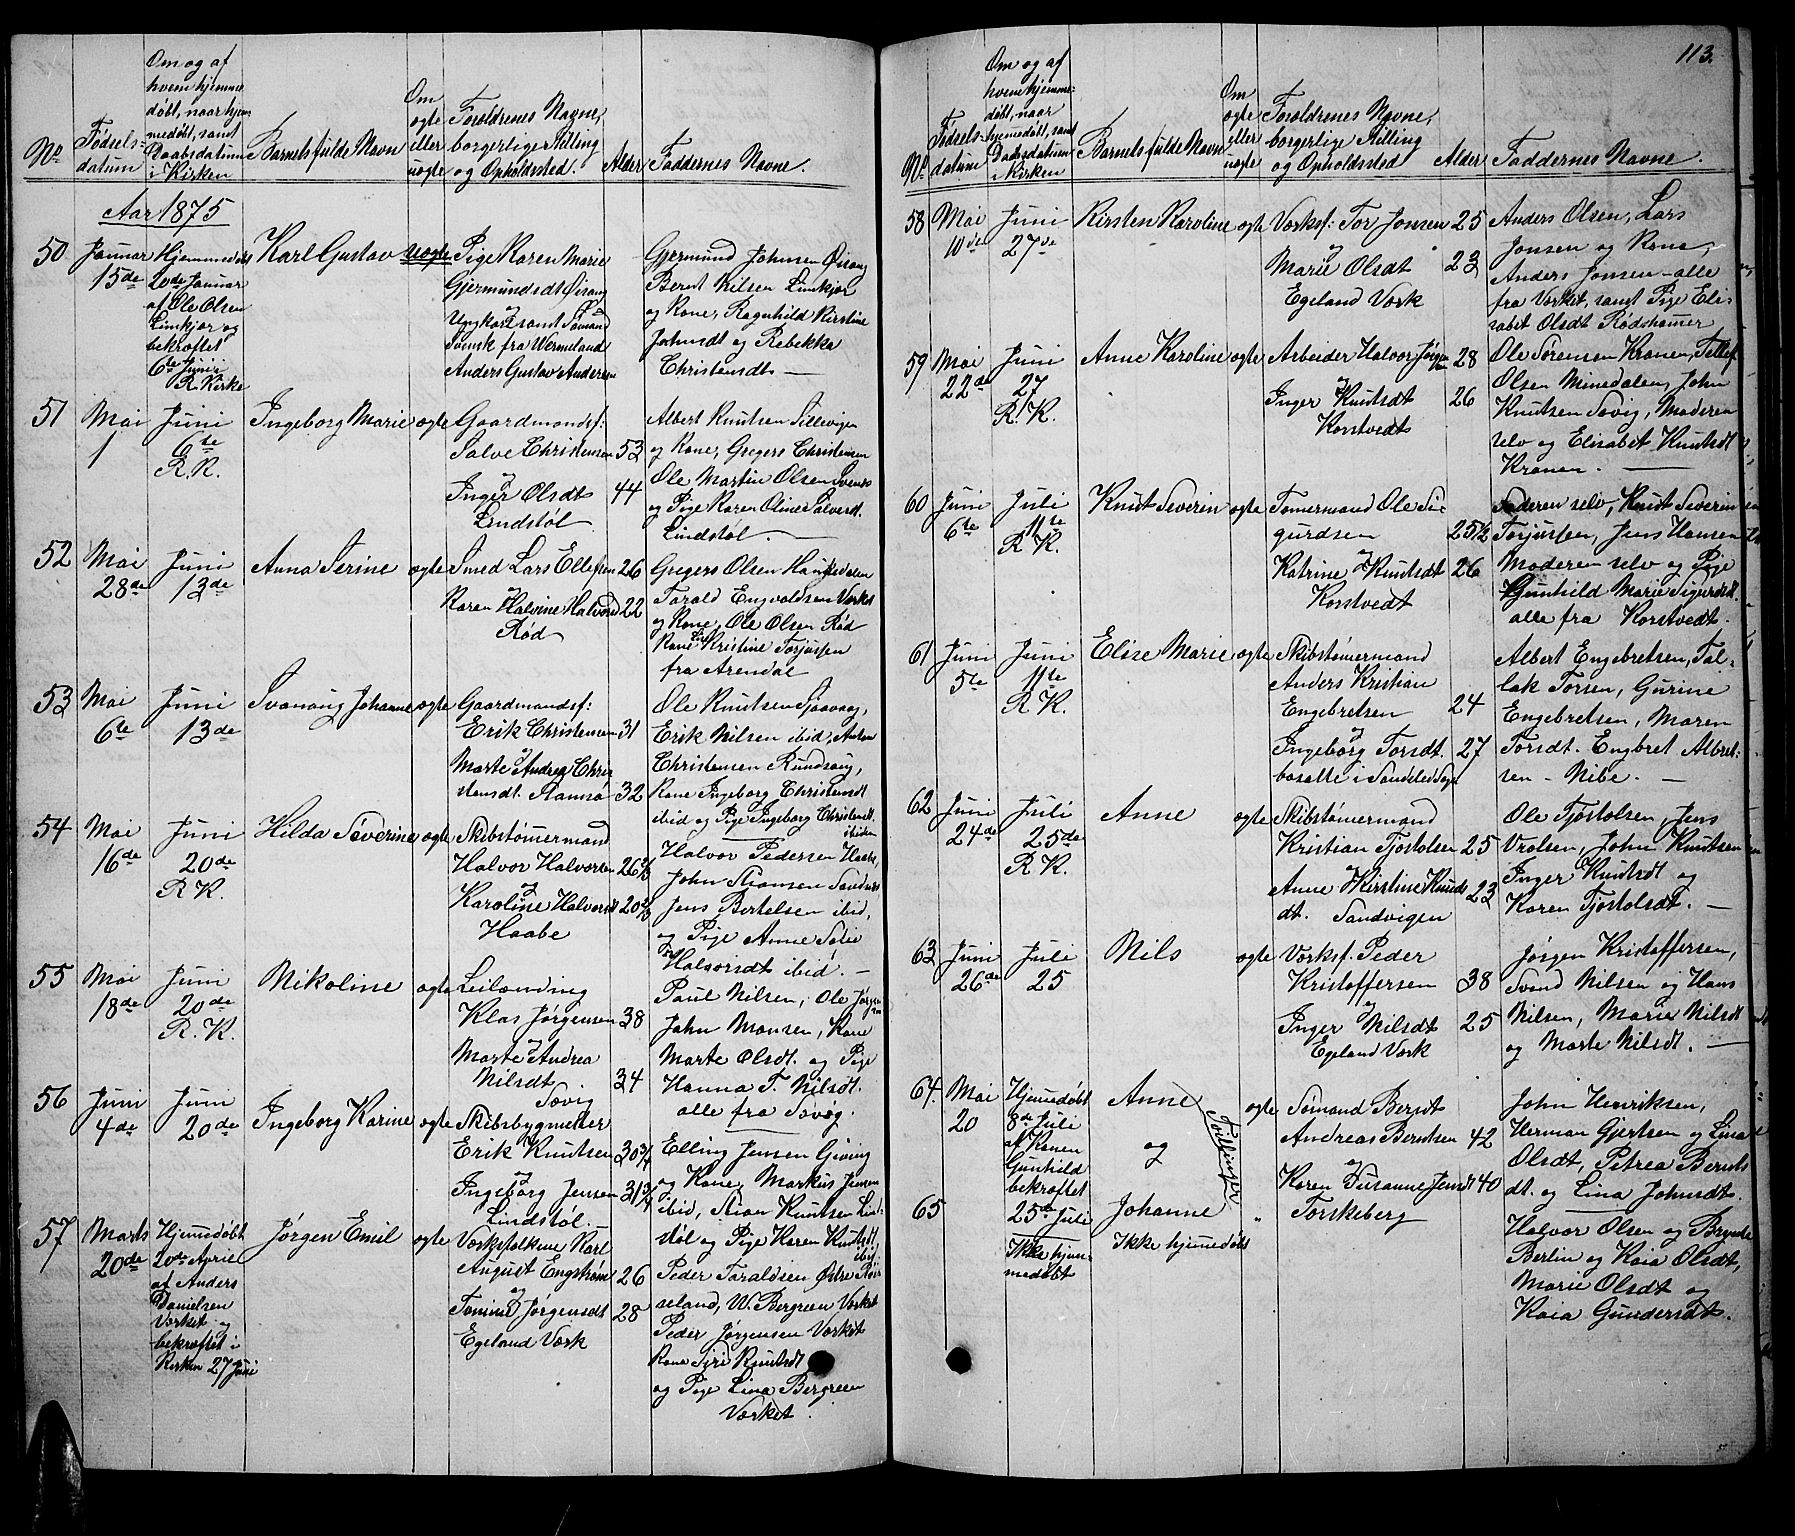 113.
No
Fødsels-
datum
Om og af
hvem hjemme-
døbt, naar hjem-
medøbt, samt
Daabsdatum
i Kirken
Barnets fulde Navn
Om
ægte
eller
uægte
Forældrenes Navne,
borgerlige Stilling
og Opholdssted.
Alder
Faddernes Navne.
Aar 1875
50
Januar
15de
Hjemmedøbt
20de Januar
af Ole Olsen
Limkjær og
bekræftet
6te Juni i
R. Kirke
Karl Gustav
uægte
Pige Karen Marie
Gjermundsdt Øisang
og
Ungkarl samt Sømand
Svensk fra Wermeland
Anders Gustav Andersen
Gjermund Johnsen Øisang
Bernt Nilsen Limkjær
og Kone, Ragnhild Kirstine
Johnsdt og Rebekka
Christensdt. —
51
Mai
1
Juni
6te
R. K.
Ingeborg Marie
ægte
Gaardmandsf:
Salve Christensen 53
og
Inger Olsdt 44
Lindstøl
Albert Knutsen Sillevigen
og Kone, Gregers Christensen
Ole Martin Olsen Svenes
og Pige Karen Oline Salvesdt.
Lindstøl. —
52
Mai
28de
Juni
13de
Anna Serine
ægte
Smed Lars Ellefsen 26
og
Karen Halvine Halvorsd 22
Rød
Gregers Olsen Hansedalen
Tarald Engvoldsen Værket
og Kone, Ole Olsen Rød
Kone Lis Kristine Torjussen
fra Arendal
53
Mai
6te
Juni
13de
Svanaug Johanne
ægte
Gaardmandsf:
Erik Christensen 31
og
Marte Andrea Chris
stensdt. Ramsø 32
Ole Knutsen Sjaavaag,
Erik Nilsen ibid, Anton
Christensen Rundsaug,
Kone Ingeborg Christensdt
ibid og Pige Ingeborg Christensdt.
ibidem
54
Mai
16de
Juni
20de
R K.
Hilda Severine
ægte
Skibstømmermand
Halvor Halvorsen 26 2/3
og
Karoline Halvorsdt 20 2/3
Haabe
Halvor Pedersen Haabe,
John Stiansen Sandnes
Jens Bertelsen ibid,
og Pige Anne Sofie
Halvorsdt ibid. —
55
Mai
18de
Juni
20de
R. K.
Nikoline
ægte
Leilænding
Klas Jørgensen 38
og
Marte Andrea
Nilsdt 34
Søvig
Paul Nilsen, Ole Jørgensen
John Monsen, Kone
Marte Olsdt. og Pige
Hanna T. Nilsdt.
alle fra Søvig.
56
Juni
4de
Juni
20de
Ingeborg Karine
ægte
Skibsbygmester
Erik Knutsen 30 3/4
og
Ingeborg Jensen 31 3/4
Lindstøl. —
Elling Jensen Giving
og Kone, Markus Jensen
ibid, Stian Knutsen Lind-
støl og Pige Karen Knutsdt.
ibid.
57
Marts
20de
Hjemmedøbt
20de April
af Anders
Danielsen
Værket og
bekræftet i
Kirken 27 Juni
Jørgen Emil
ægte
Værksfolkene Karl
August Engstrøm 26
og
Tomine Jørgensdt 28
Egeland Værk
Peder Taraldsen Østre Røis
seland, W. Bergreen Værket
Peder Jørgensen Værket
Kone Siri Knutsdt
og Pige Lina Bergreen
Værket.
No
Fødsels-
datum
Om og af
hvem hjemme-
døbt, naar
hjemmedøbt, samt
Daabsdatum
i Kirken
Barnets fulde Navn
Om
ægte
eller
uægte
Forældrenes Navne,
borgerlige Stilling
og Opholdssted
Alder
Faddernes Navne.
58
Mai
10de
Juni
27de
Kirsten Karoline
ægte
Værksf: Tor Jonsen 25
og
Marie Olsdt 23
Egeland Værk
Anders Olsen, Lars
Jonsen og Kone,
Anders Jonsen – alle
fra Værket, samt Pige Eli-
sabet Olsdt Rødshammer
59
Mai
22de
Juni
27
R. K.
Anne Karoline
ægte
Arbeider Halvor Jørgensen 28
og
Inger Knutsdt 26
Korstvedt
Ole Sørensen Kranen, Tellef
Olsen Minedalen, John
Knutsen Søvig, Moderen
selv og Elisabet Knutsdt
Kranen. —
60
Juni
6te
Juli
11te
R K.
Knut Severin
ægte
Tømmermand Ole Si-
gurdsen 25 1/2
og
Katrine Knutsdt 26
Korstvedt
Faderen selv, Knut Severin
Torjussen, Jens Hansen
Moderen selv og Pige
Gunhild Marie Sigurdsdt.
alle fra Korstvedt.
61
Juni
5te
Juli
11te
R K.
Elise Marie
ægte
Skibstømmermand
Anders Kristian
Engebretsen 24
og
Ingeborg Torsdt 27
bosatte i Søndeled Sogn
Albert Engebretsen, Tal-
lak Torsen, Gurine
Engebretsen, Maren
Torsdt. Engbret Albret-
sen – Nibe. —
62
Juni
24de
Juli
25de
R K.
Anne
ægte
Skibstømmermand
Kristian Tjøstolsen 25
og
Anne Kirstine Knuds 23
dt. Sandvigen
Ole Tjøstolsen, Jens
Vrolsen, John Knutsen
Inger Knutsdt og
Karen Tjøstolsdt. —
63
Juni
26de
Juli
25
Nils
ægte
Værksf. Peder
Kristoffersen 38
og
Inger Nilsdt 25
Egeland Værk
Jørgen Kristoffersen,
Svend Nilsen og Hans
Nilsen, Marie Nilsdt
og Marte Nilsdt. —
64.
Mai
20
Hjemmedøbt
8de Juli
af Konen
Gunhild
bekræftet
25de Juli
Anne
og
Tvillinger
ægte
Sømand Berndt
Andreas Berntsen 42
og
Karen Susanne Jensdt 40
Torskeberg
John Henriksen,
Herman Gjertsen og Lina
Olsdt, Petrea Bernts
dt. og Lina Johnsdt.
65
Ikke hjem-
medøbt
Johanne
Ikke hjemmedøbt
"
Halvor Olsen og Brynte
Berlin og Kaia Olsdt,
Marie Olsdt og
Kaia Gundersdt.